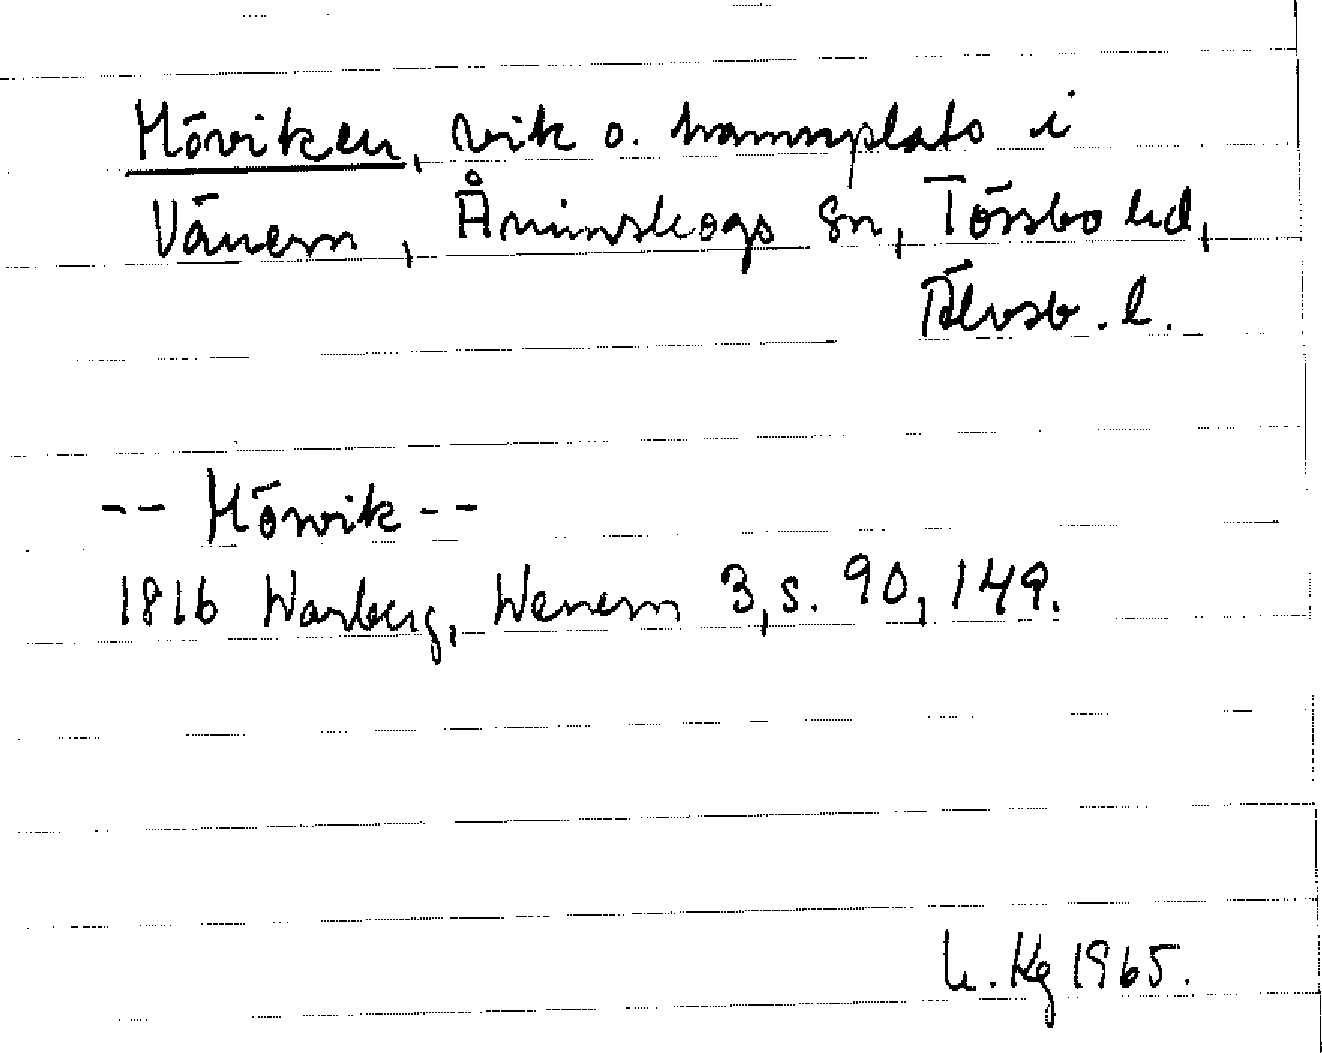 Höviken, vik o. hamnplats i
Vänern, Ånimskogs sn, Tössbo hd,
Älvsb. l.
-- Höwik --
1816 Warberg, Wenern 3, s. 90, 149.
h. Kg 1965.